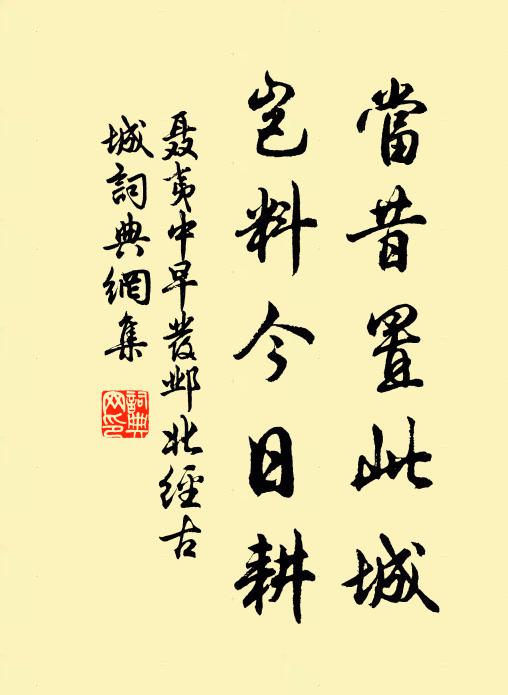 當昔置此城
岂料今日耕
聂夷中早發邺北經古
城詞典網集
詞典
网印